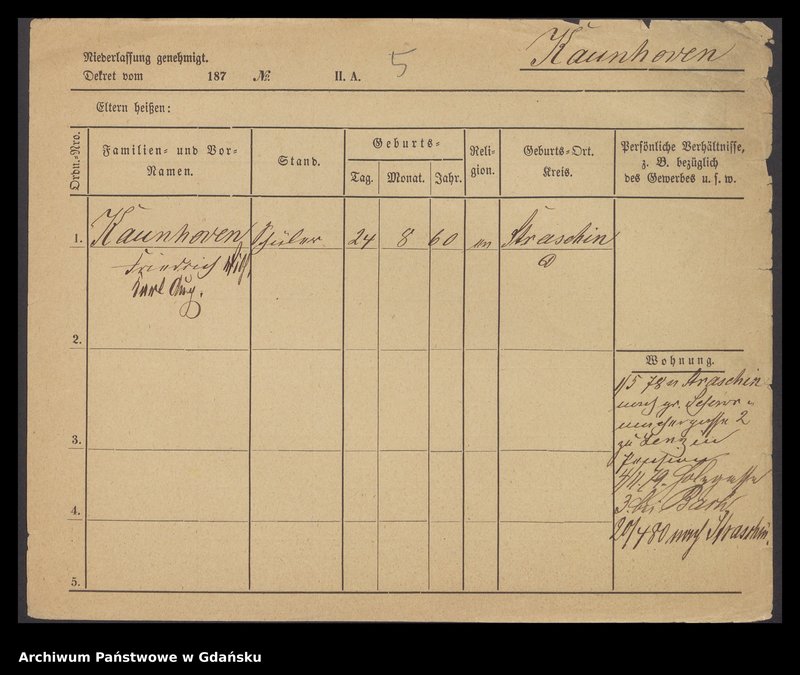 Niederlassung genehmigt.
Dekret vom 187 № II. A. 5
Kaunhoven
Eltern heißen:
Ordn.-Nro.
Familien- und Vor-
Namen.
Stand.
Geburts-
Tag. Monat. Jahr.
Reli-
gion.
Geburts-Ort.
Kreis.
Persönliche Verhältnisse,
z. B. bezüglich
des Gewerbes u. s. w.
1. Kaunhoven Schüler 24 8 60 ev Straschin
Friedrich Wilh.
D
Karl Aug.
2.
Wohnung.
1/5 78 v Straschin
nach gr.
2
3. zu
in
Pension
4/11 79. Holzgasse
4. 3. bei
20/4 80 nach Straschin.
5.
Archiwum Państwowe w Gdańsku